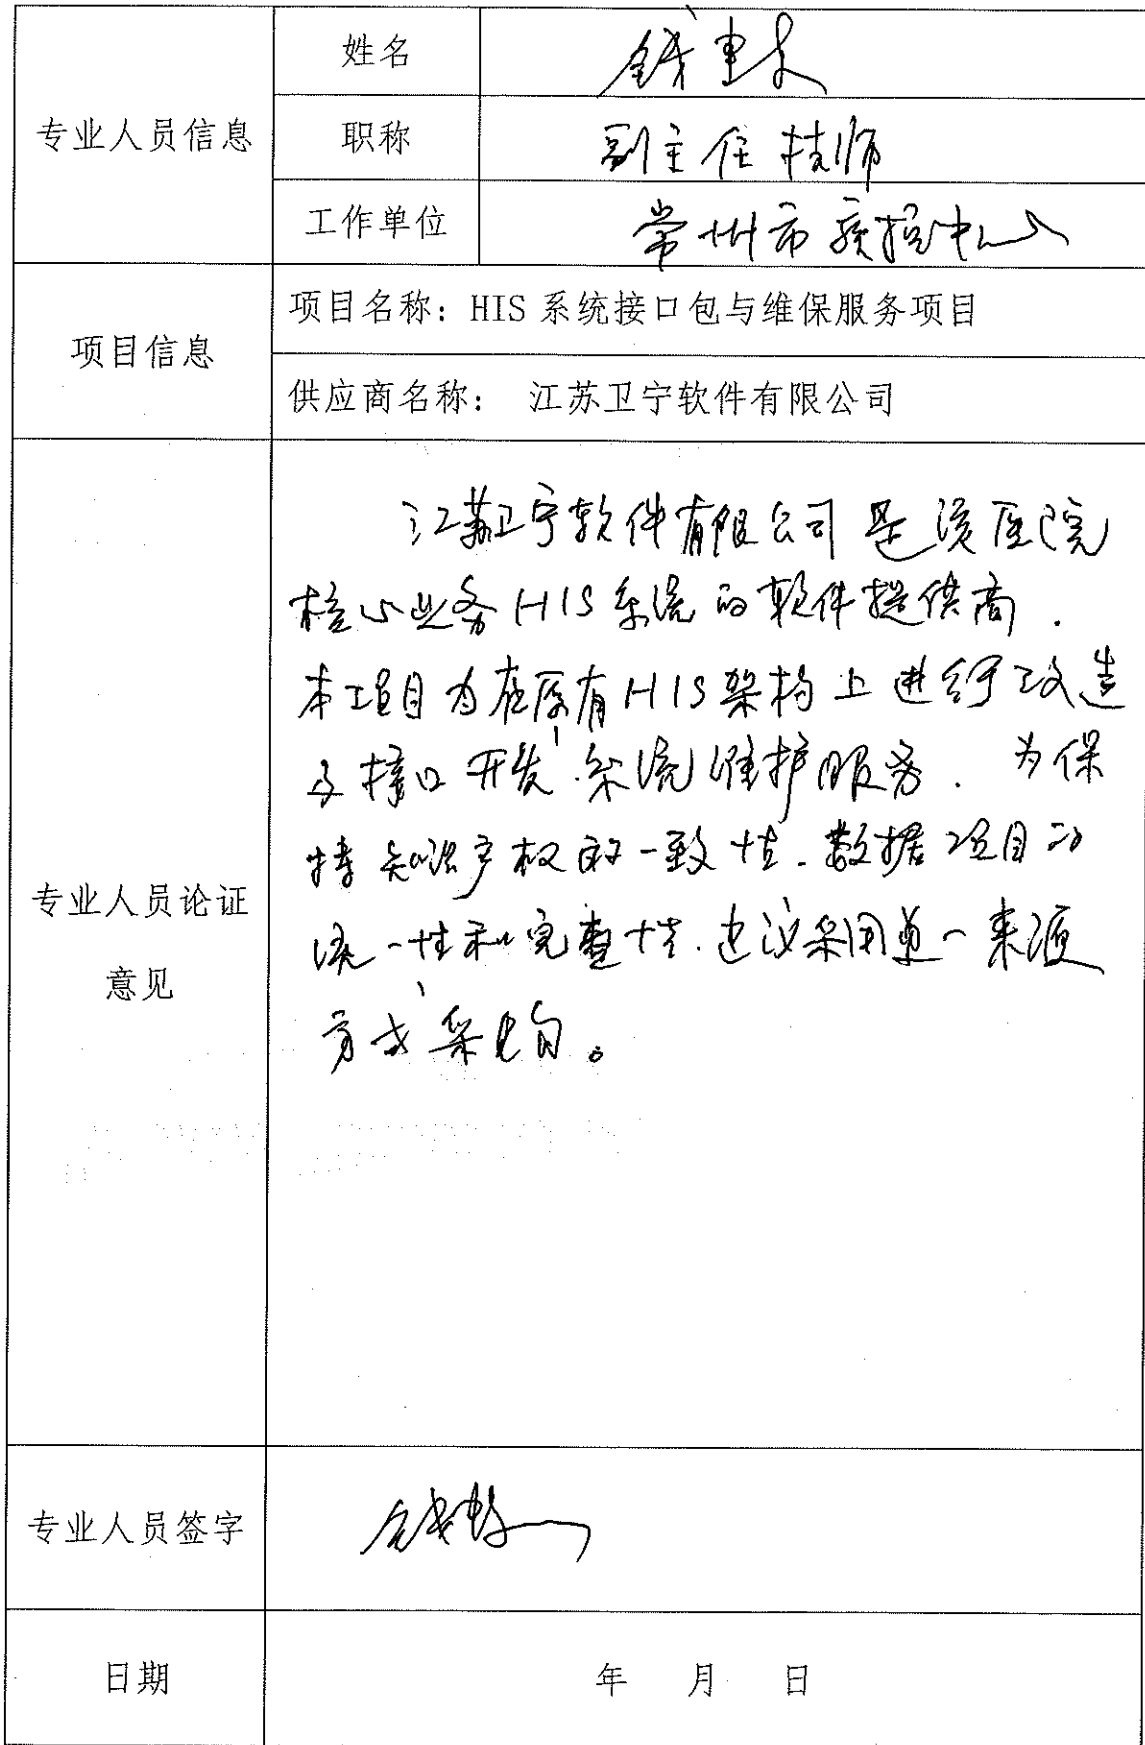 专业人员信息
姓名
钱
职称
副主任技师
工作单位
常州市疾控中心
项目信息
项目名称：HIS 系统接口包与维保服务项目
供应商名称： 江苏卫宁软件有限公司
专业人员论证
意见
江苏卫宁软件有限公司是该医院
核心业务HIS系统的软件提供商.
本项目为在原有HIS架构上进行改造
及接口开发、系统维护服务. 为保
持知识产权的一致性.数据项目的
统一性和完整性.建议采用单一来源
方式采购。
专业人员签字
钱
日期
年 月 日